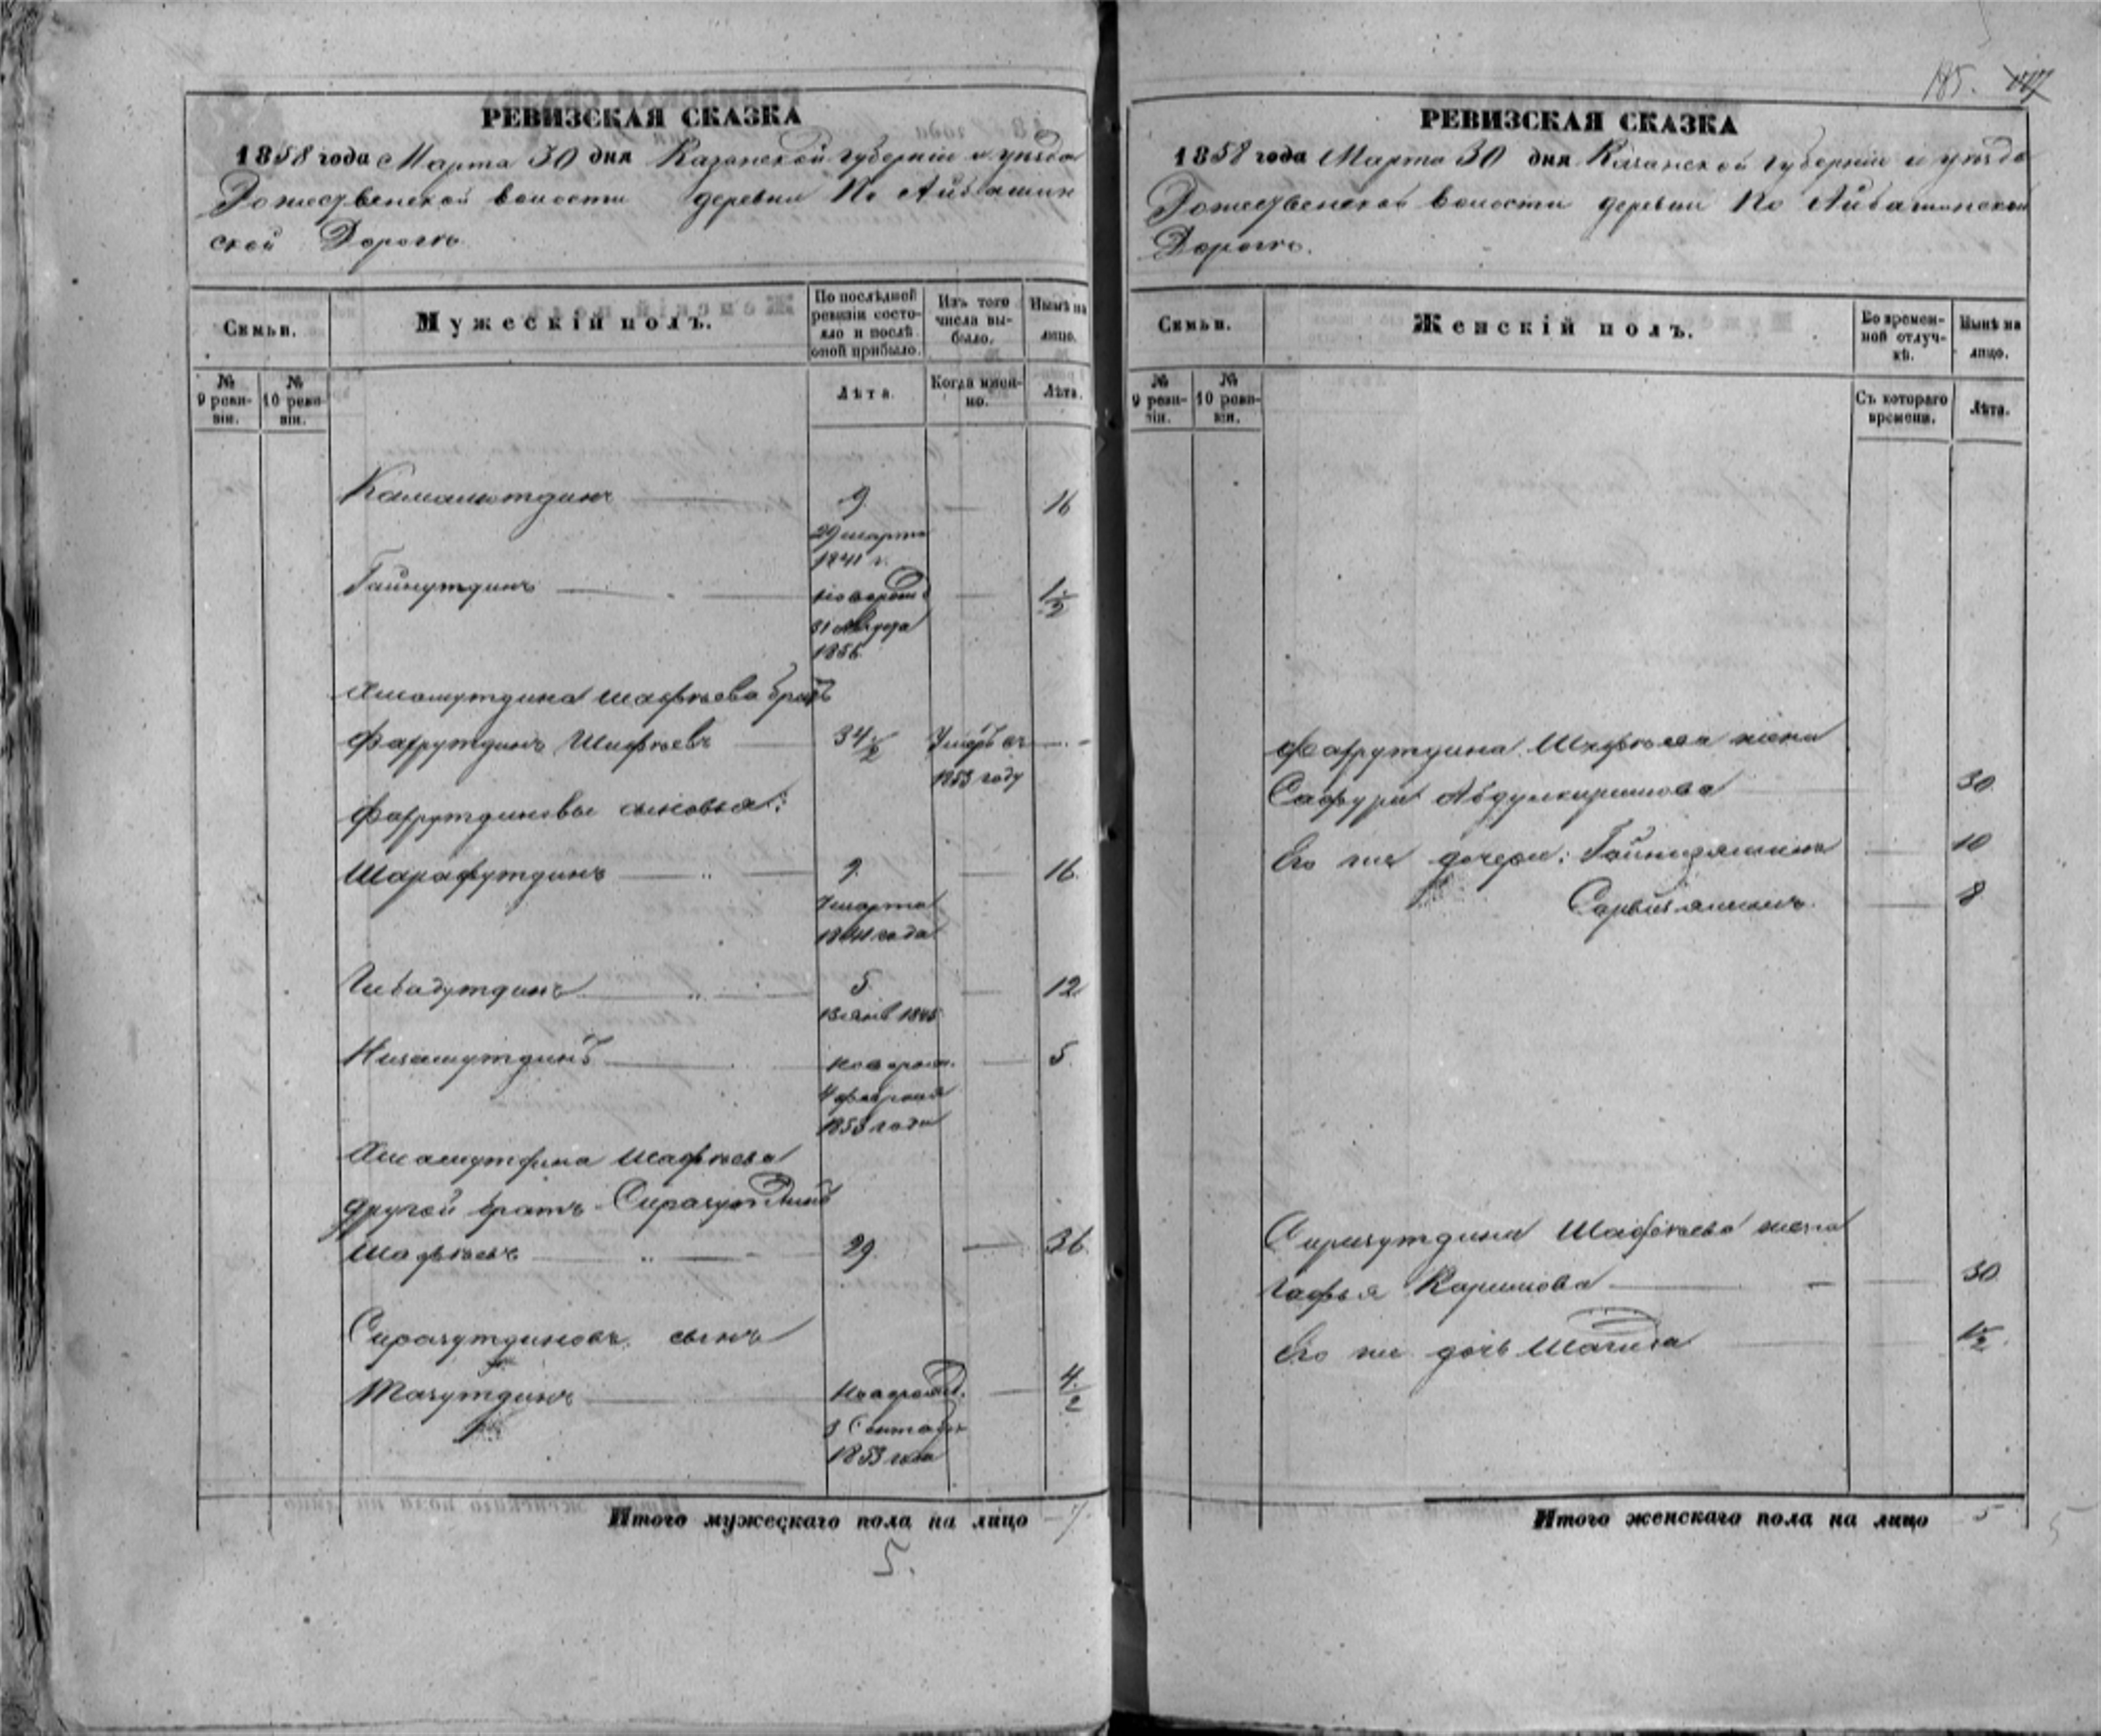 РЕВИЗСКАЯ СКАЗКА
1858 года Марта 30 дня Казанской губернии и уезда
волости деревни По Айбашин
ской Дороге
Семьи.
Мужескій полъ.
По послѣдней ревизіи состояло и послѣ оной прибыло.
Изъ того числа выбыло.
Нынѣ на лицо.
№ 9 ревизіи.
№ 10 ревизіи.
Лѣта.
Когда именно.
Лѣта.
Камалютдинъ 9 16
29 марта
1841 г.
Гайнутдинъ новорожд 1/2
31 Августа
1856
Шафѣева братъ
Фахрутдинъ Шафѣевъ 34 1/2 Умеръ въ
1853 году
Фахрутдиновы сыновья:
Шарафутдинъ 9 16
7 марта
1841 года
Гибадутдинъ 5 12
13 янв 1845
Низамутдинъ новорож. 5
4 февраля
1853 года
Шафѣева
другой братъ Сиразутдинъ
Шафѣевъ 29 36
Сиразутдиновъ сынъ
Тазутдинъ новорожд. 4 1/2
3 Сентября
1853 года
Итого мужескаго пола на лицо 7
5.
185. 177
РЕВИЗСКАЯ СКАЗКА
1858 года Марта 30 дня Казанской губернии и уезда
волости деревни По Айбашинской
Дороге.
Семьи.
Женскій полъ.
Во временной отлучкѣ.
Нынѣ на лицо.
№ 9 ревизіи.
№ 10 ревизіи.
Съ котораго времени.
Лѣта.
Фахрутдина Шафѣева жена
Сафура Абдулкаримова 30
Его же дочери: Гайнизямина 10
8
Сиразутдина Шафѣева жена
Каримова 30
Его же дочь 1/2
Итого женскаго пола на лицо 5
5